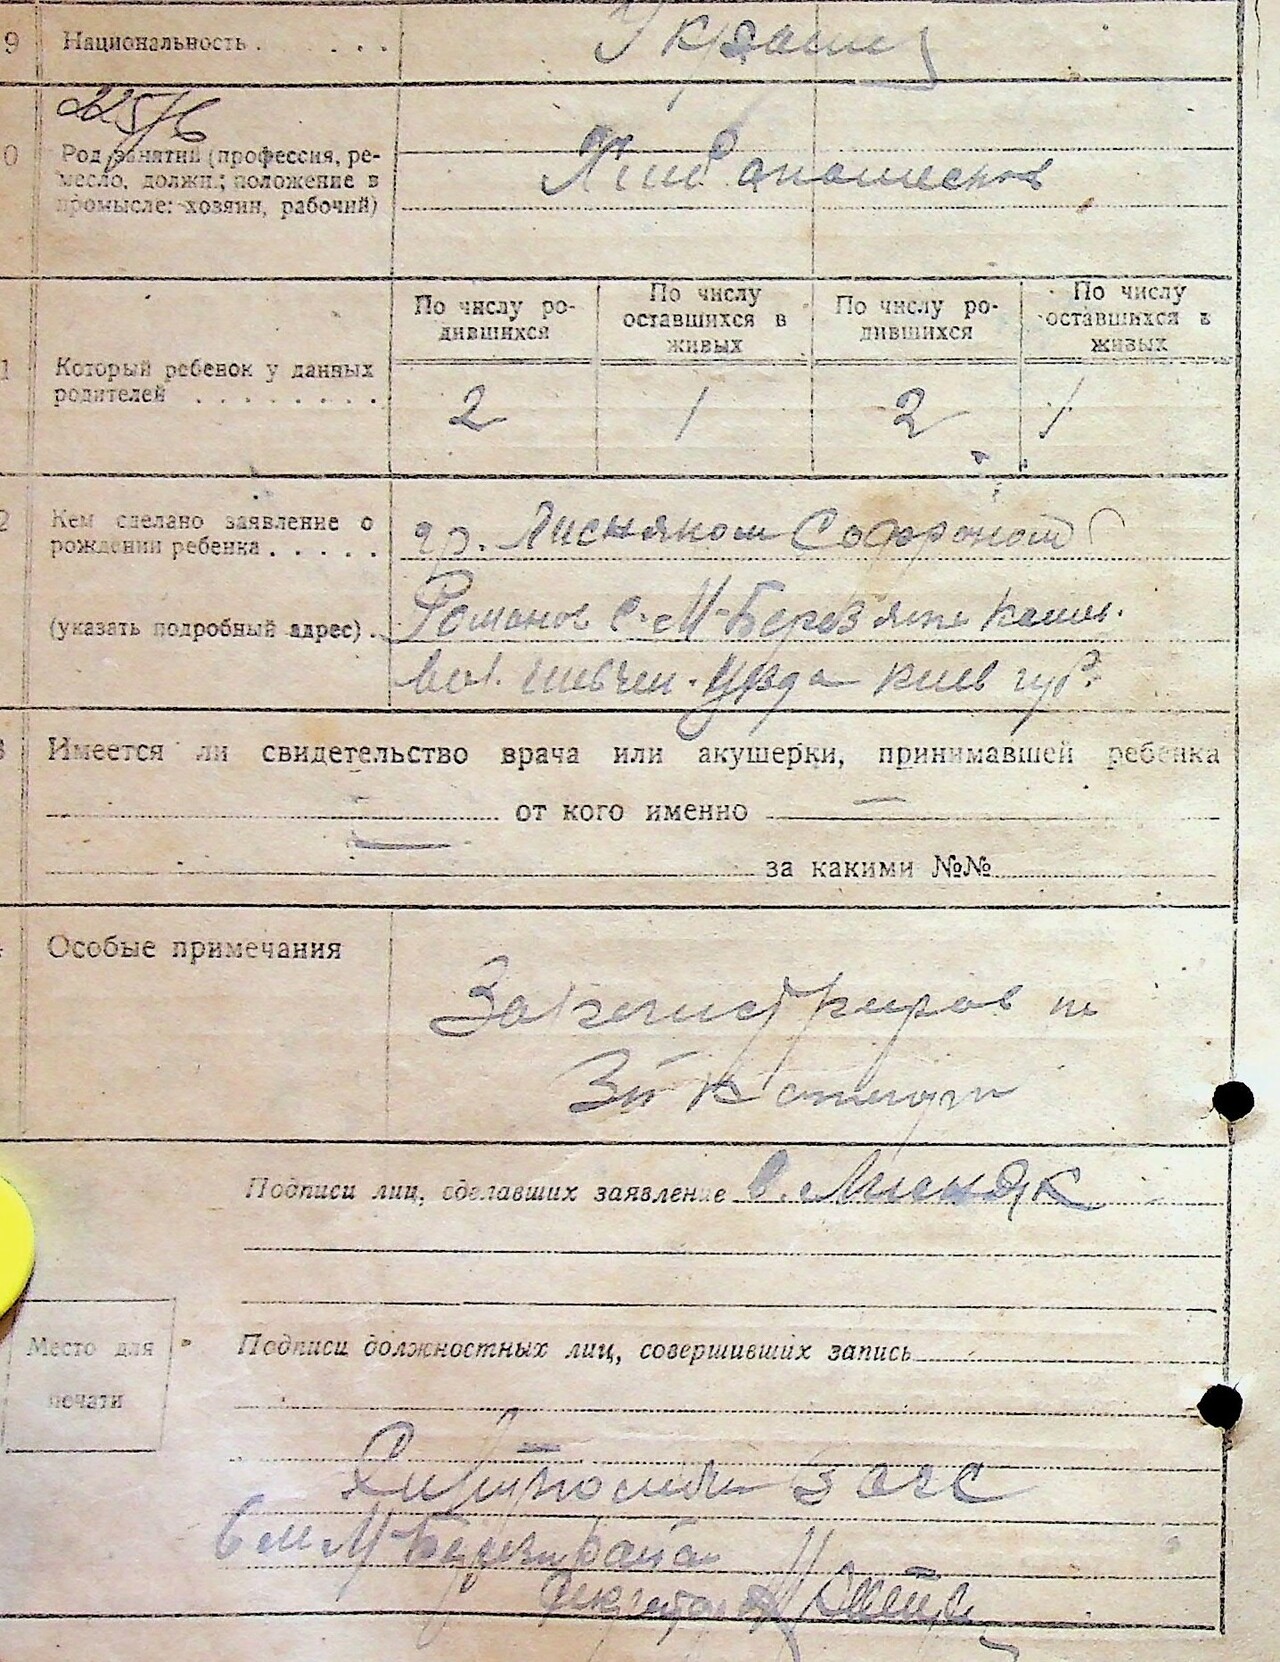 9 Национальность . . . . .
Украинц
225/6
0 Род занятий (профессия, ре-
месло, должн.; положение в
промысле: хозяин, рабочий)
Хлибопашество
По числу ро-
дившихся
По числу
оставшихся в
живых
По числу ро-
дившихся
По числу
оставшихся в
живых
1 Который ребенок у данных
родителей . . . . . . . .
2 1 2 1
2 Кем сделано заявление о
рождении ребенка . . . . .
гр. Лисняком Софроном
(указать подробный адрес) .
Романов с. М-Березянка
вол. шевчен. уезда киев губ.
3 Имеется ли свидетельство врача или акушерки, принимавшей ребенка
— от кого именно —
— за какими №№
Особые примечания
Зарегистриров по
3й категори
Подписи лиц, сделавших заявление С. Лисняк
Место для
печати
Подписи должностных лиц, совершивших запись
загс
М-Берез района
Секретар